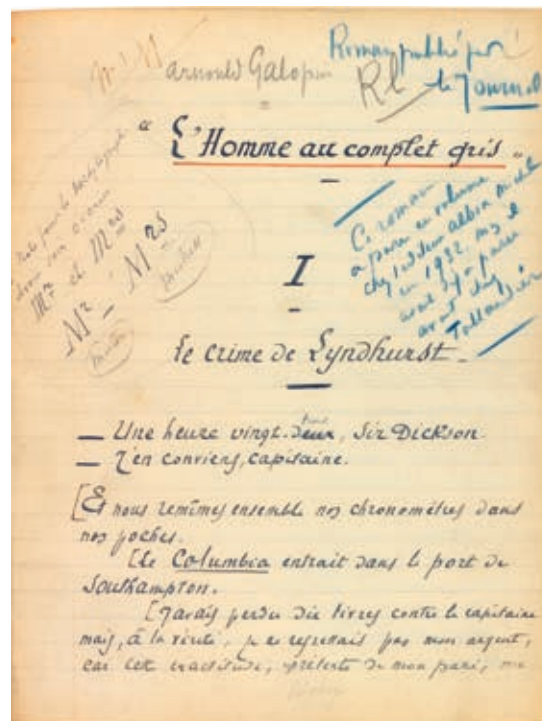 Arnould Galopin
Roman publié par
Rl
le Journal
" L'Homme au complet gris "
Ce roman
a paru en volume
chez l'éditeur Albin Michel
en 1932, mais il
avait déjà paru
avant chez
Tallandier
Note pour le
Mr et Mrs
Mr - Mrs
I
Le crime de Lyndhurst.
— Une heure vingt-deux, Sir Dickson.
— J'en conviens, capitaine.
[Et nous remîmes ensemble nos chronomètres dans
nos poches.
[Le Columbia entrait dans le port de
Southampton.
[J'avais perdu dix livres contre le capitaine
mais, à la vérité, je ne regrettais pas mon argent,
car cette exactitude, prétexte de mon pari, me